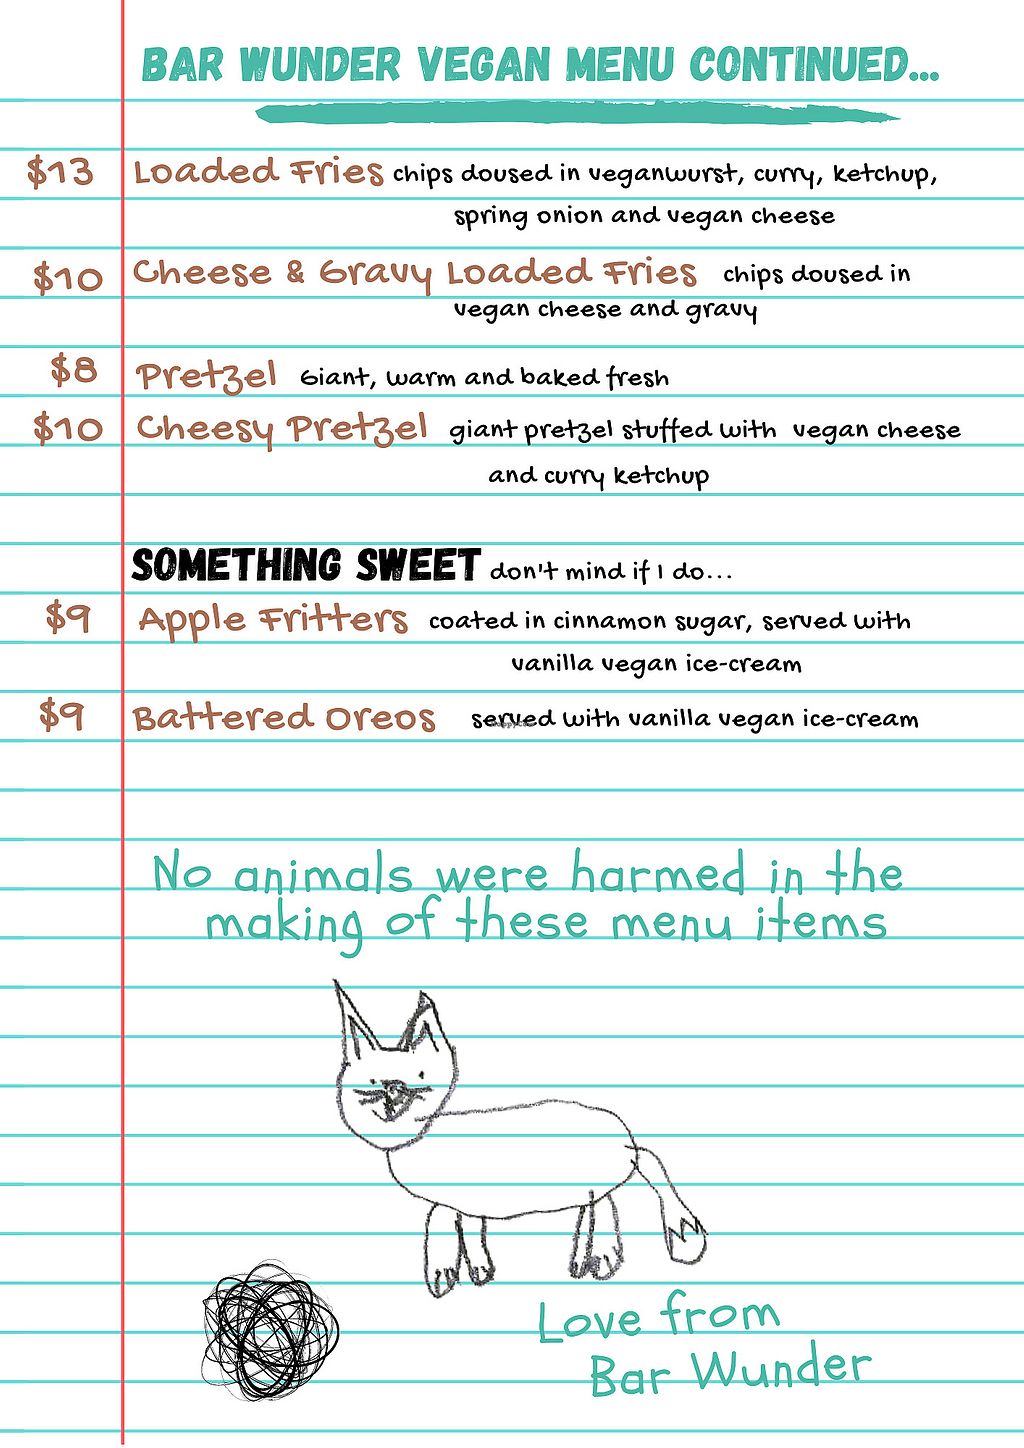 BAR WUNDER VEGAN MENU CONTINUED...
$13 Loaded Fries chips doused in veganwurst, curry, ketchup,
spring onion and vegan cheese
$10 Cheese & Gravy Loaded Fries chips doused in
vegan cheese and gravy
$8 Pretzel Giant, warm and baked fresh
$10 Cheesy Pretzel giant pretzel stuffed with vegan cheese
and curry ketchup
SOMETHING SWEET don't mind if I do...
$9 Apple Fritters coated in cinnamon sugar, served with
vanilla vegan ice-cream
$9 Battered Oreos served with vanilla vegan ice-cream
No animals were harmed in the
making of these menu items
Love from
Bar Wunder